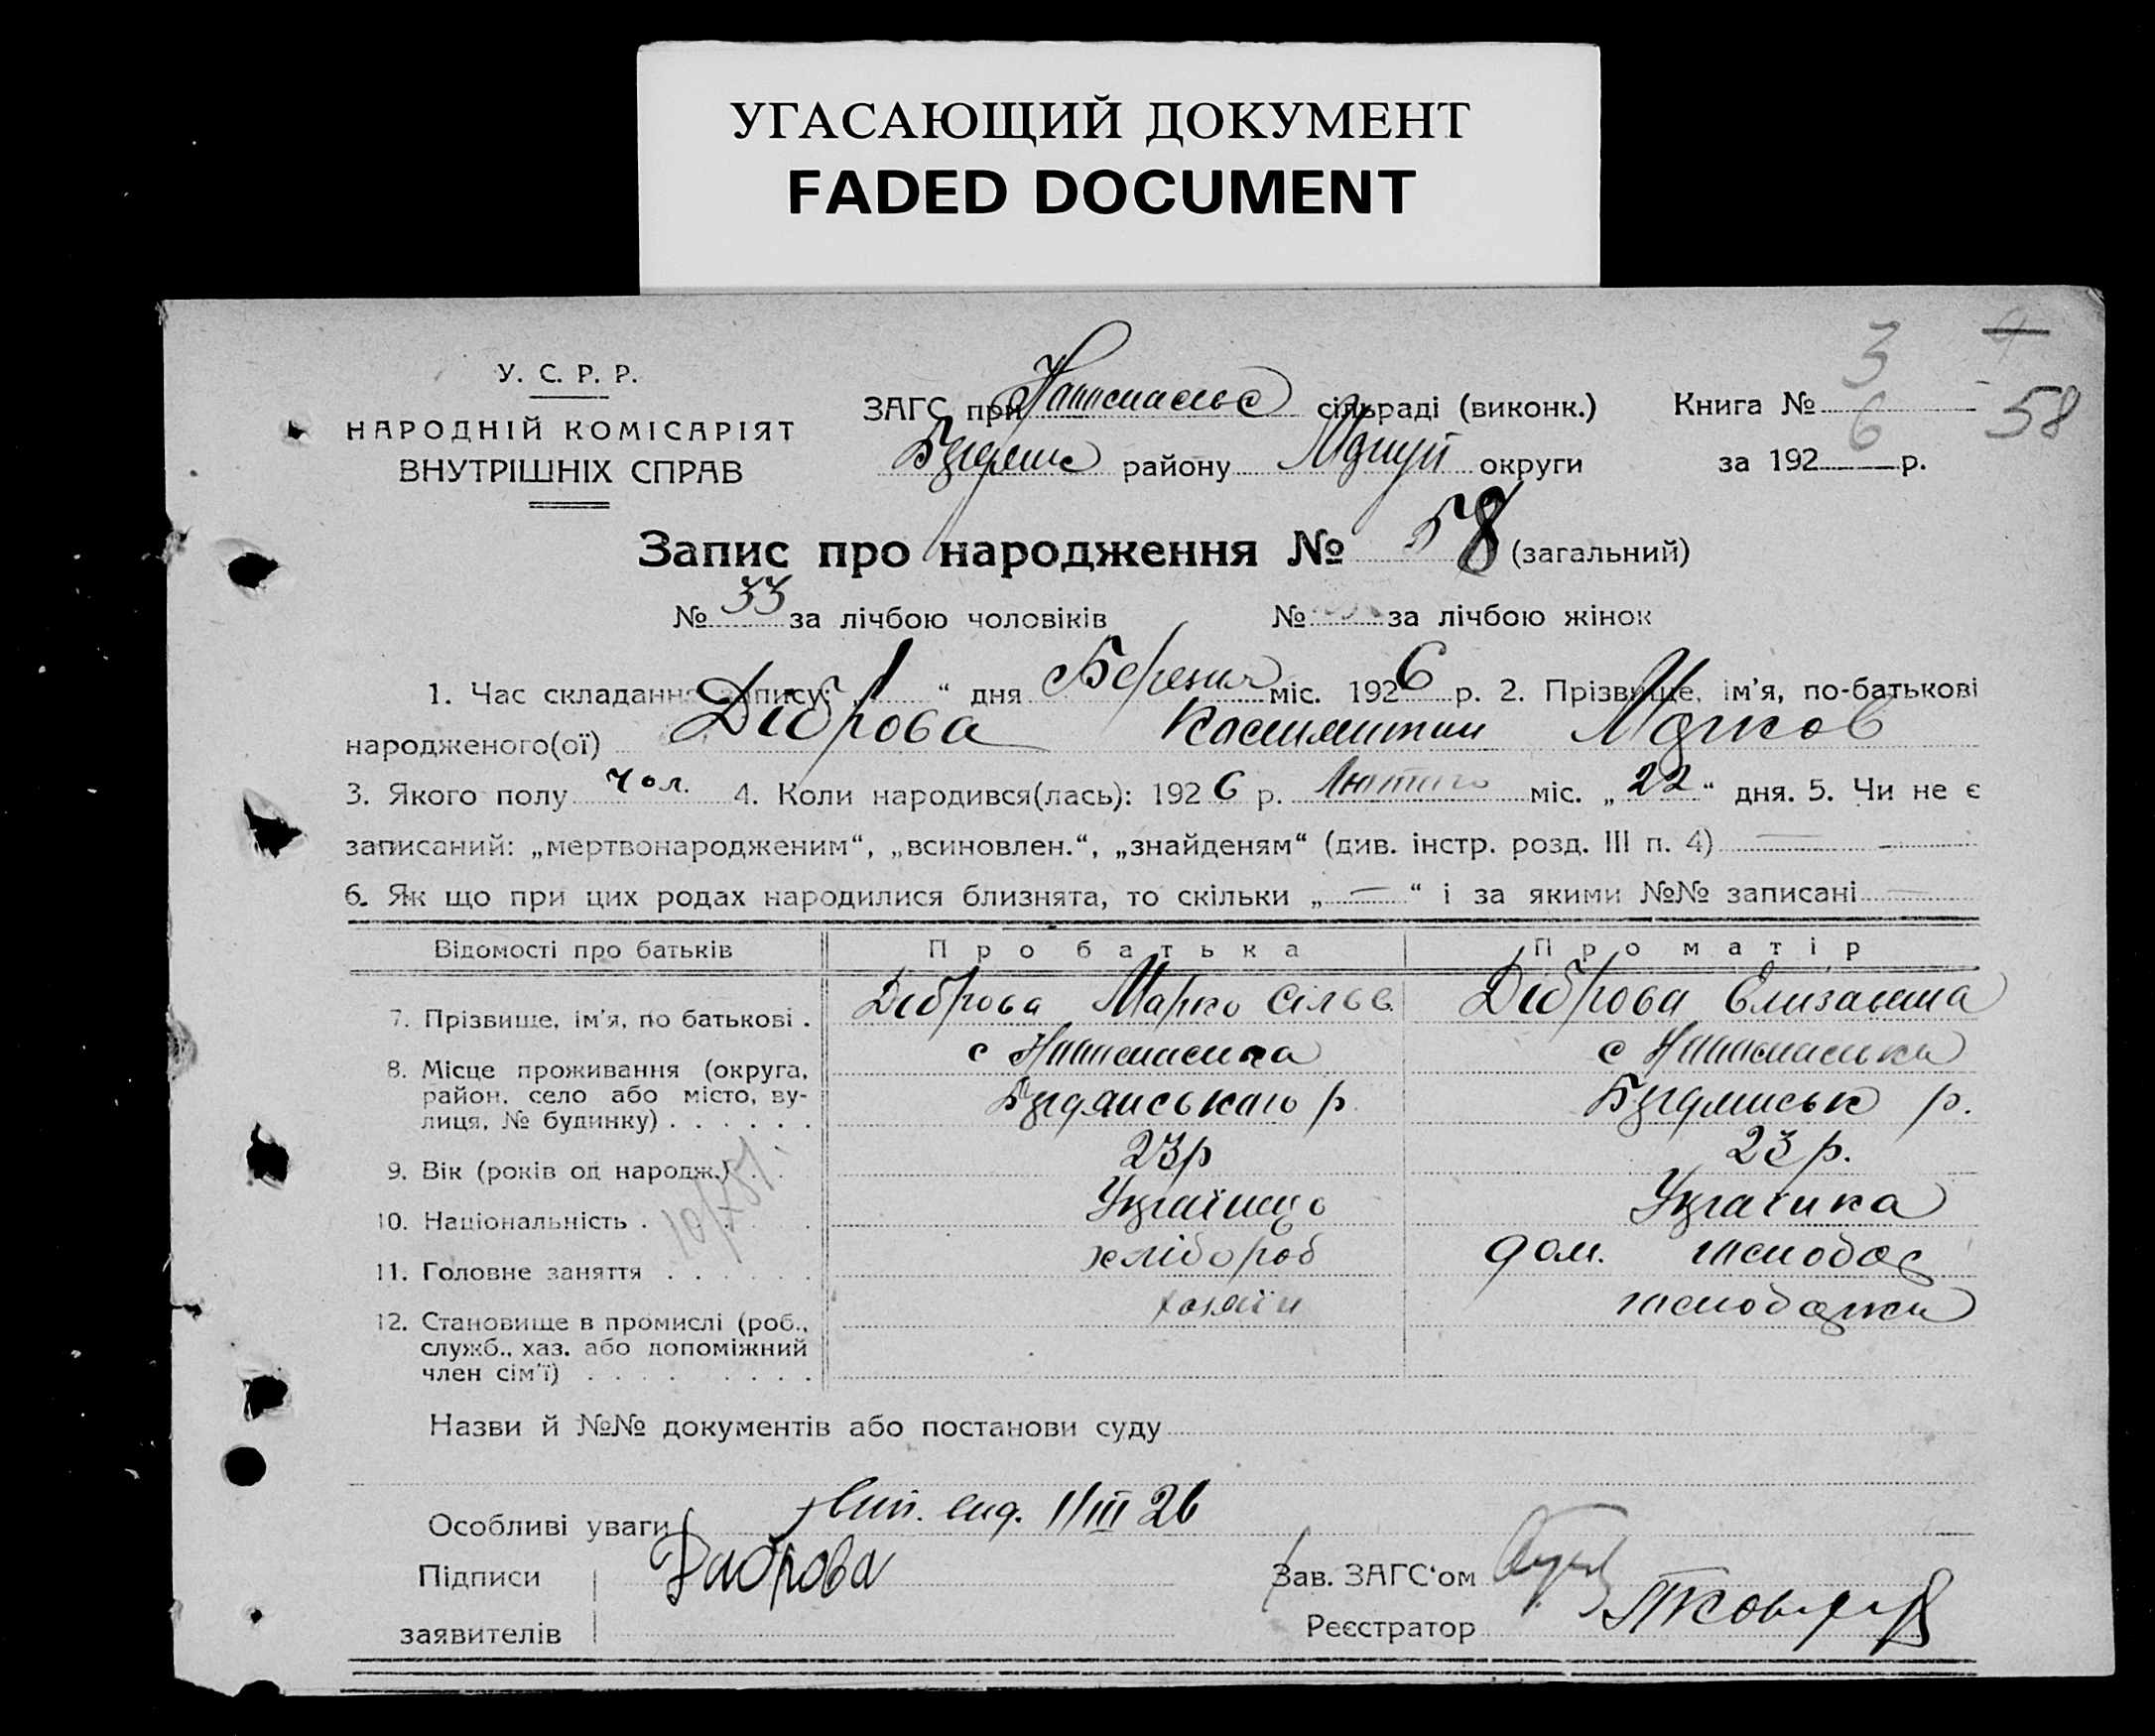 УГАСАЮЩИЙ ДОКУМЕНТ
FADED DOCUMENT
3 4
У. С. Р. Р.
НАРОДНІЙ КОМІСАРІЯТ
ВНУТРІШНІХ СПРАВ
ЗАГС при сільраді (виконк.)
району округи
Книга № 58
за 192 6 р.
Запис про народження № 58 (загальний)
№ 33 за лічбою чоловіків № за лічбою жінок
1. Час складання запису: 1 “ дня Березня міс. 1926 р. 2. Прізвище, ім'я, по-батькові
народженого(ої) Діброва Костянтин Марков
3. Якого полу чол. 4. Коли народився(лась): 1926 р. Лютого міс. „ 22 “ дня. 5. Чи не є
записаний: „мертвонародженим“, „всиновлен.“, „знайденям“ (див. інстр. розд. III п. 4) —
6. Як що при цих родах народилися близнята, то скільки „ — “ і за якими №№ записані —
Відомості про батьків Про батька Про матір
7. Прізвище, ім'я, по батькові . Діброва Марко Сільв. Діброва Елизавета
8. Місце проживання (округа, район, село або місто, вулиця, № будинку) . . . . . .
с с
р р.
9. Вік (років од народж.) . . 23р 23 р.
10. Національність . . . Українець Українка
11. Головне заняття . . . . . . хлібороб дом. господар
12. Становище в промислі (роб., служб., хаз. або допоміжний член сім'ї) . . . . . . . .
хозяїн господарка
10/X 51
Назви й №№ документів або постанови суду
Особливі уваги вид. 1/III 26
Підписи Диброва Зав. ЗАГС‘ом
заявителів Реєстратор